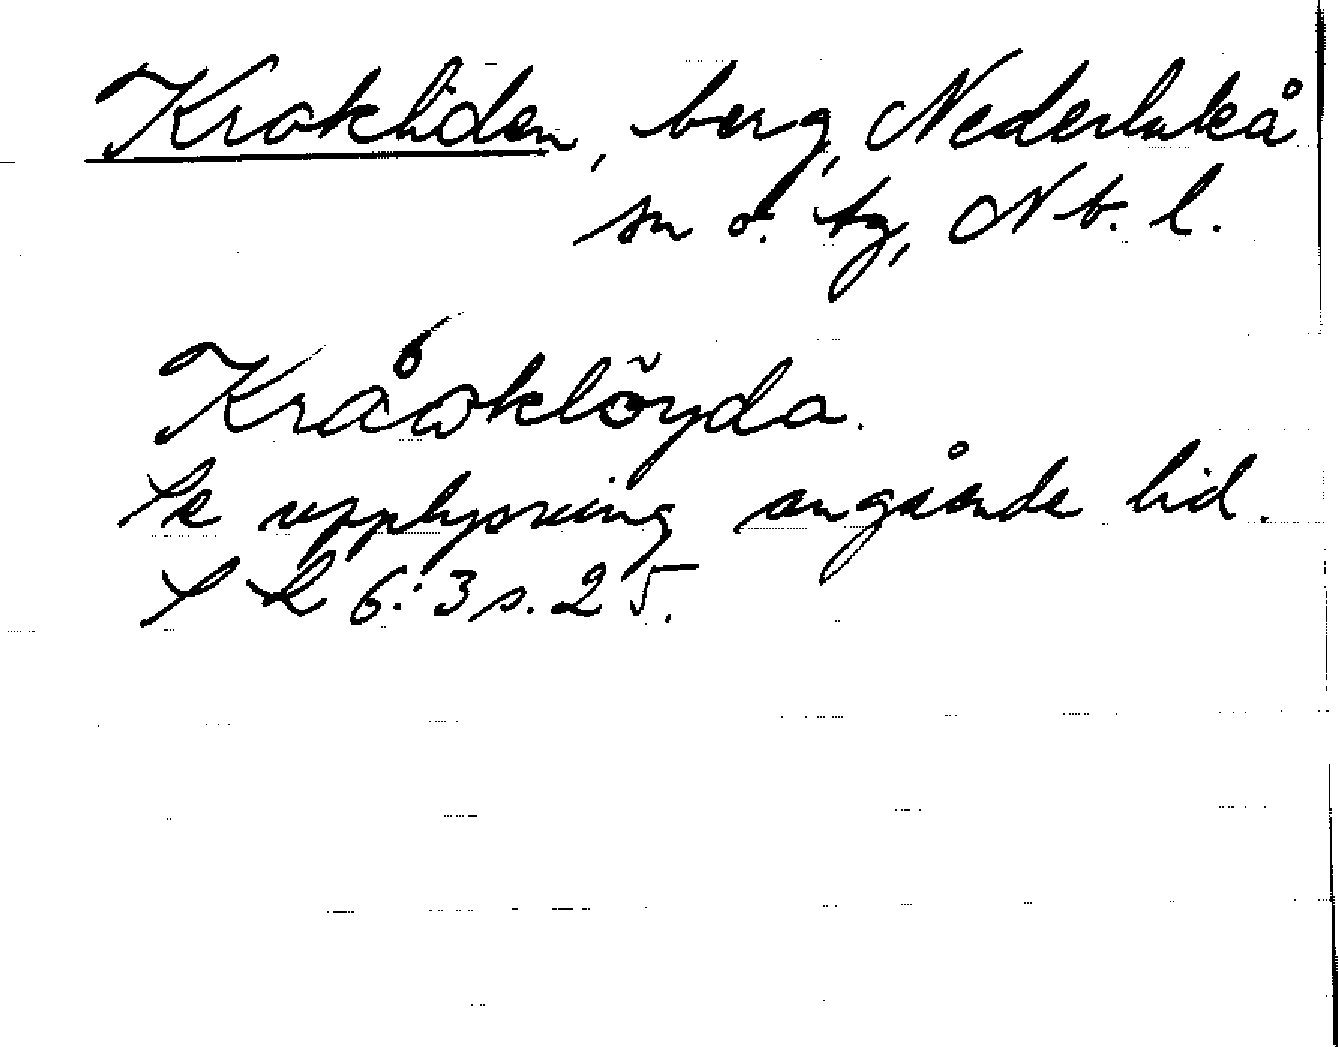 Krokliden, berg, Nederluleå
sn o. tg, Nb. l.
Kråωklõyda.
Sk upplysning angående lid.
SL 6:3 s. 25.